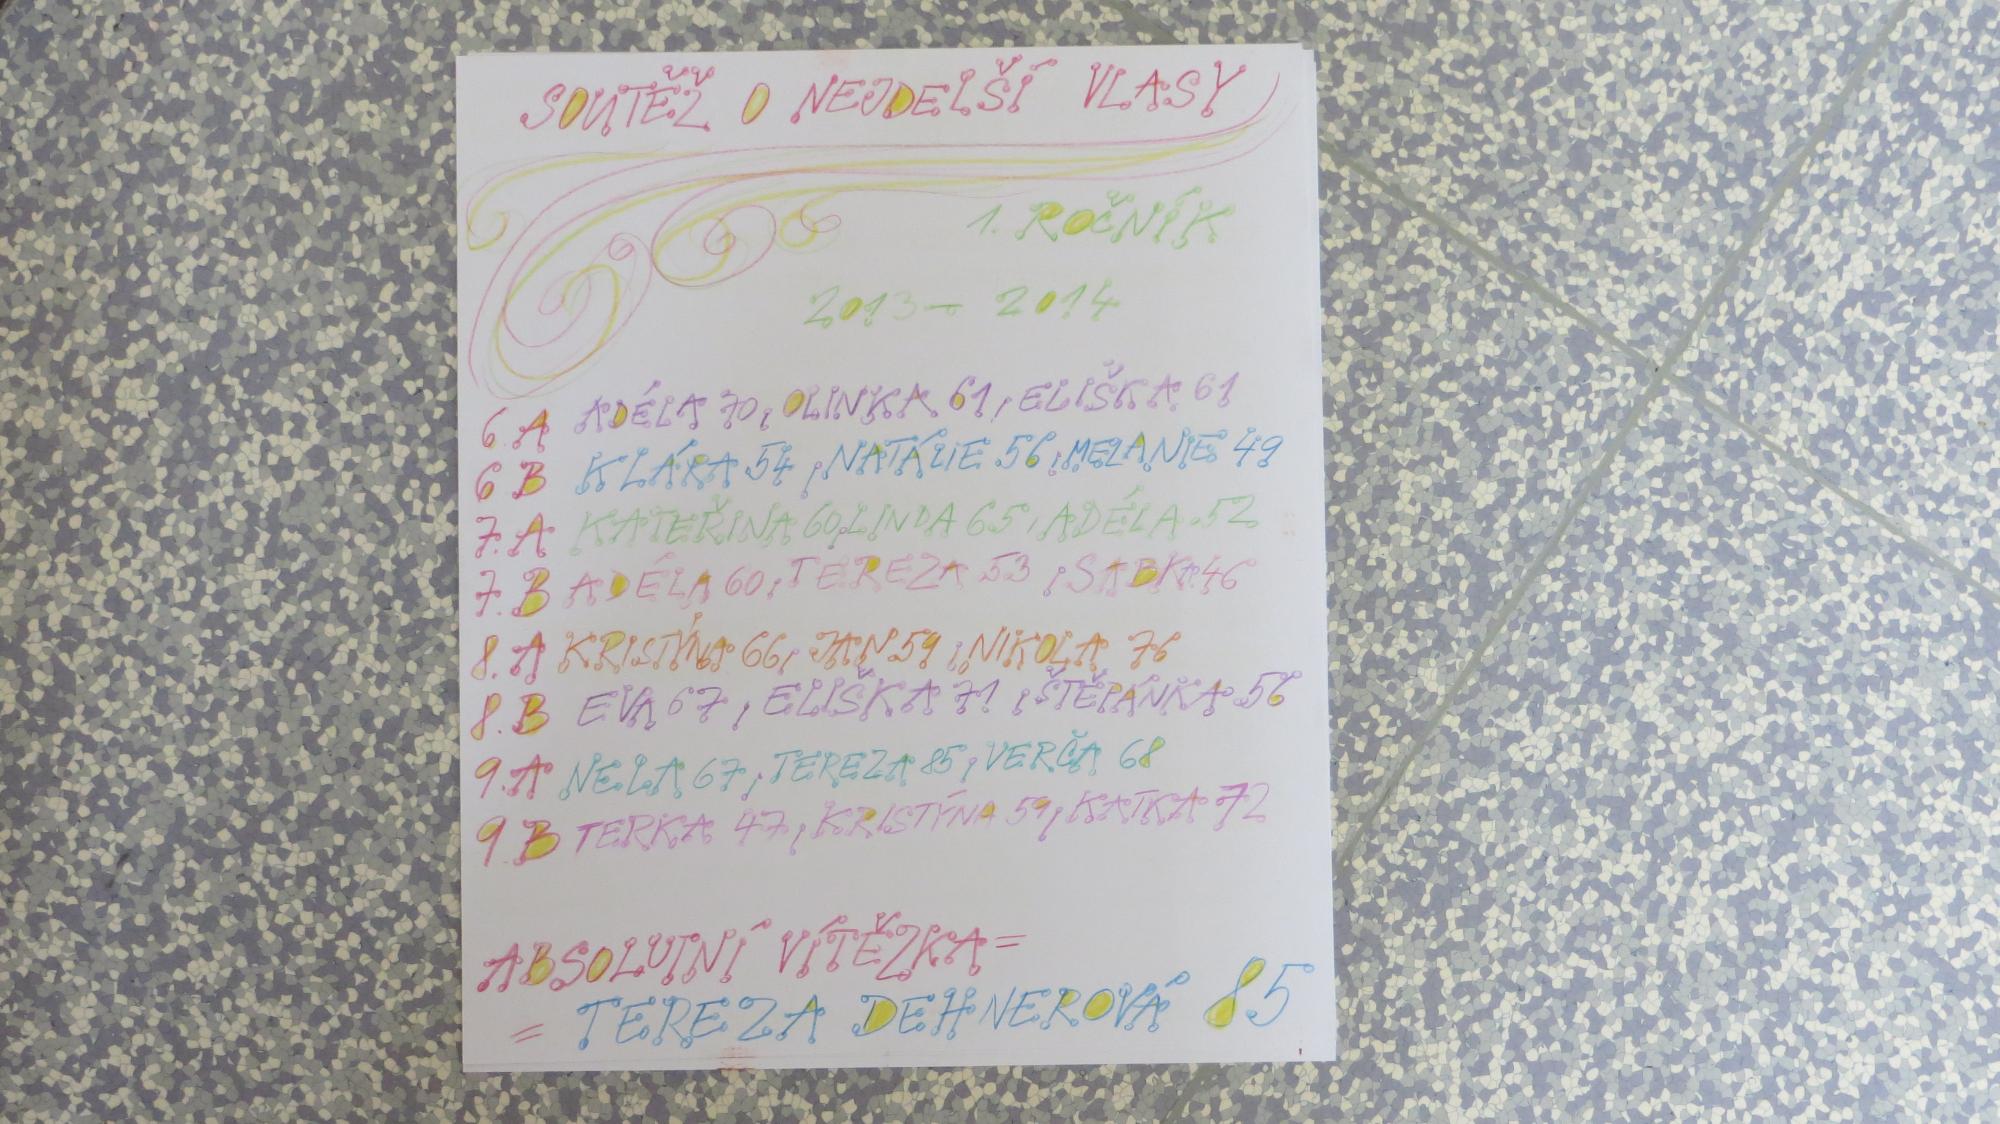 SOUTĚŽ O NEJDELŠÍ VLASY
1. ROČNÍK
2013 - 2014
6. A ADÉLA 70, OLINKA 61, ELIŠKA 61
6 B KLÁRA 54, NATÁLIE 56, MELANIE 49
7. A KATEŘINA 60, LINDA 65, ADÉLA 52
7. B ADÉLA 60, TEREZA 53, SABKA 46
8. A KRISTÝNA 66, JAN 59, NIKOLA 76
8. B EVA 67, ELIŠKA 71, ŠTĚPÁNKA 56
9. A NELA 67, TEREZA 85, VERČA 68
9. B TERKA 47, KRISTÝNA 59, KATKA 72
ABSOLUTNÍ VÍTĚZKA =
= TEREZA DEHNEROVÁ 85